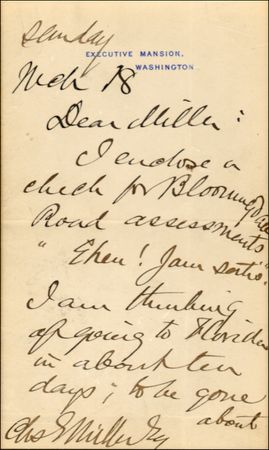 Sunday
EXECUTIVE MANSION,
WASHINGTON
Mch 18
Dear Miller:
I enclose a
check for Bloomingdale
Road assessments
"Eheu! Jam satis".
I am thinking
of going to Florida
in about ten
days; to be gone
about
Chs E Miller Esq